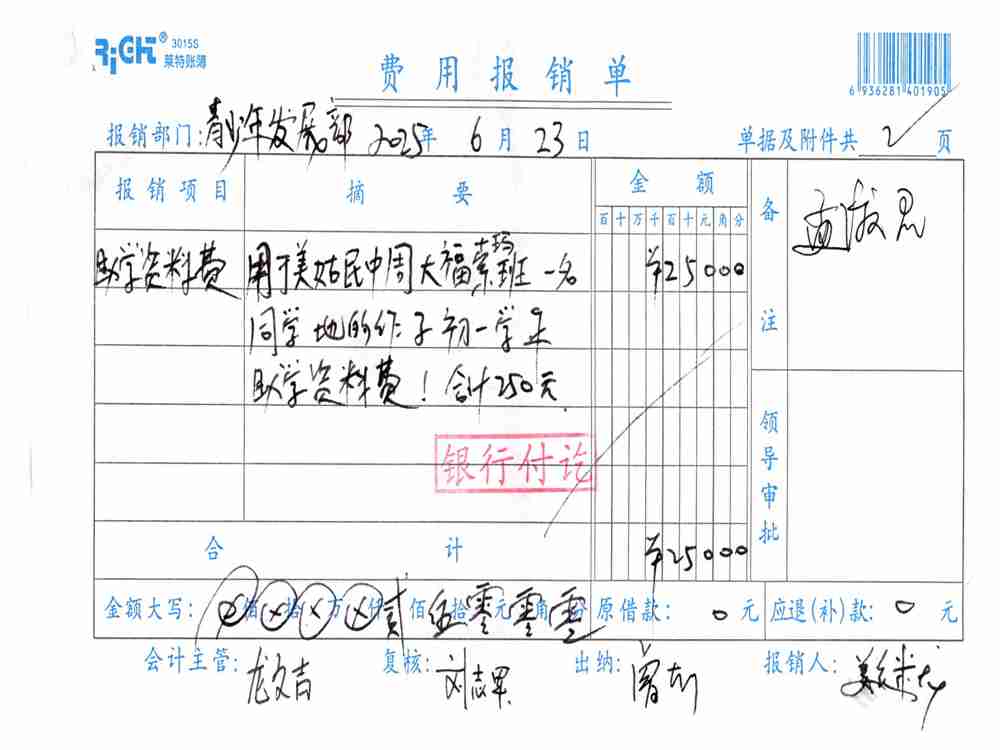 RiCH® 3015S
莱特账簿
费用报销单
6 936281 401905
报销部门:青少年发展部 2025年 6月 23日 单据及附件共 2 页
报销项目 摘要 金额 备注
百十万千百十元角分
助学资料费 用于美姑民中周大福索玛班一名 ¥25000
同学地的作子初一学年
助学资料费！合计250元
银行付讫
领导审批
合计 ¥25000
金额大写: ⊗佰⊗拾⊗万⊗仟贰佰伍拾零元零角零分 原借款: 0 元 应退(补)款: 0 元
会计主管:龙文吉 复核:刘志军 出纳: 报销人: